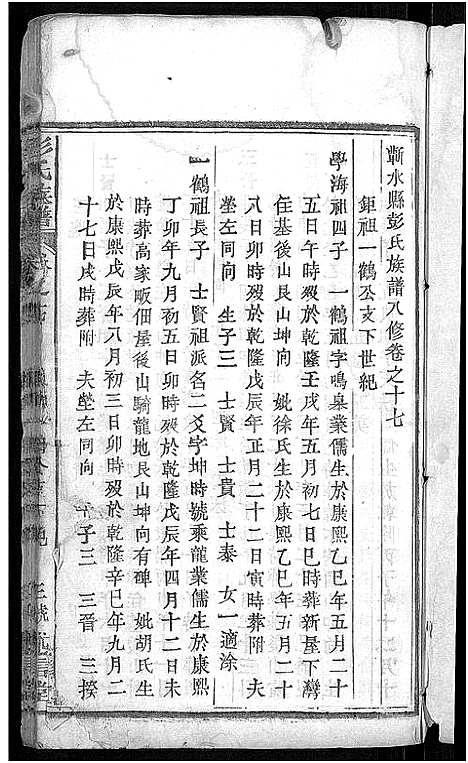 蘄水縣彭氏族譜八修卷之十七
鉅祖一鶴公支下世紀
學海祖四子　一鶴祖字鳴臯業儒生於康熙乙巳年五月二十
五日午時歿於乾隆壬戌年五月初七日巳時葬新屋下灣
住基後山艮山坤向　妣徐氏生於康熙乙巳年五月二十
八日卯時歿於乾隆戊辰年正月二十二日寅時葬附　夫
塋左同向　生子三　士賢　士貴　士泰　女一適涂
一鶴祖長子　士賢祖派名二爻字坤時號乘龍業儒生於康熙
丁卯年九月初五日卯時歿於乾隆戊辰年四月十二日未
時葬高家畈佃屋後山騎龍地艮山坤向有碑　妣胡氏生
於康熙戊辰年八月初三日卯時歿於乾隆辛巳年九月二
十七日戌時葬附　夫塋左同向　子三　三晉　三揆
彭氏族譜